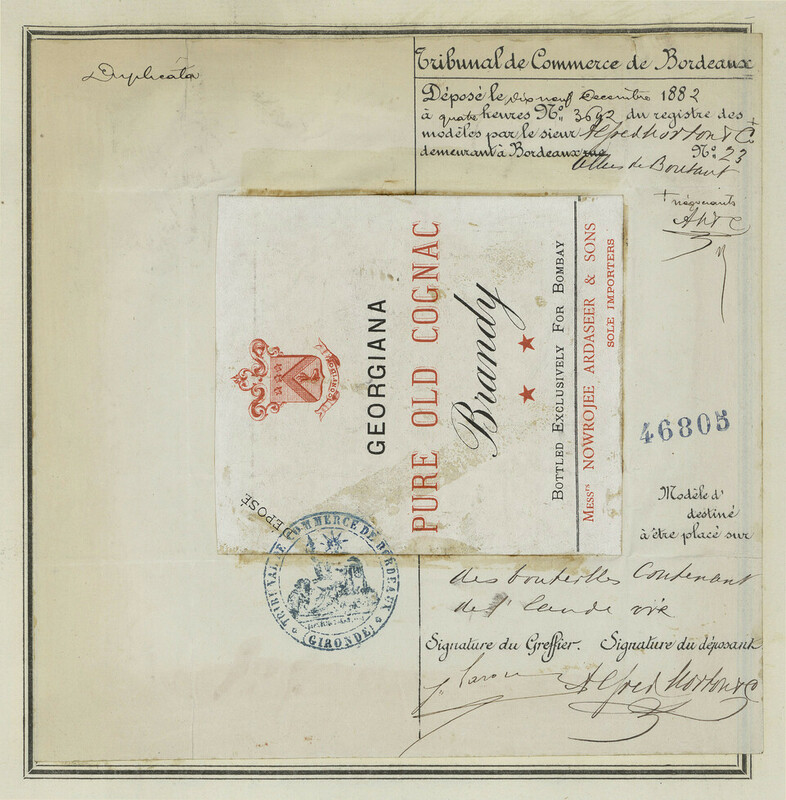 Duplicata
Tribunal de Commerce de Bordeaux
Déposé le dix neuf Decembre 1882
à quatre heures No. 3692 du registre des
modèles par le sieur Alfred Morton & Co +
demeurant à Bordeaux rue No. 23
Allées de Boutaut
+ négociants
GEORGIANA
PURE OLD COGNAC
Brandy
★ ★ ★
BOTTLED EXCLUSIVELY FOR BOMBAY
MESSRS NOWROJEE ARDASEER & SONS
SOLE IMPORTERS
DÉPOSÉ
46805
Modèle d'
destiné
à être placé sur
des bouteilles Contenant
de l'eau de vie
TRIBUNAL DE COMMERCE DE BORDEAUX
(GIRONDE)
Signature du Greffier. Signature du déposant
Alfred Morton & Co